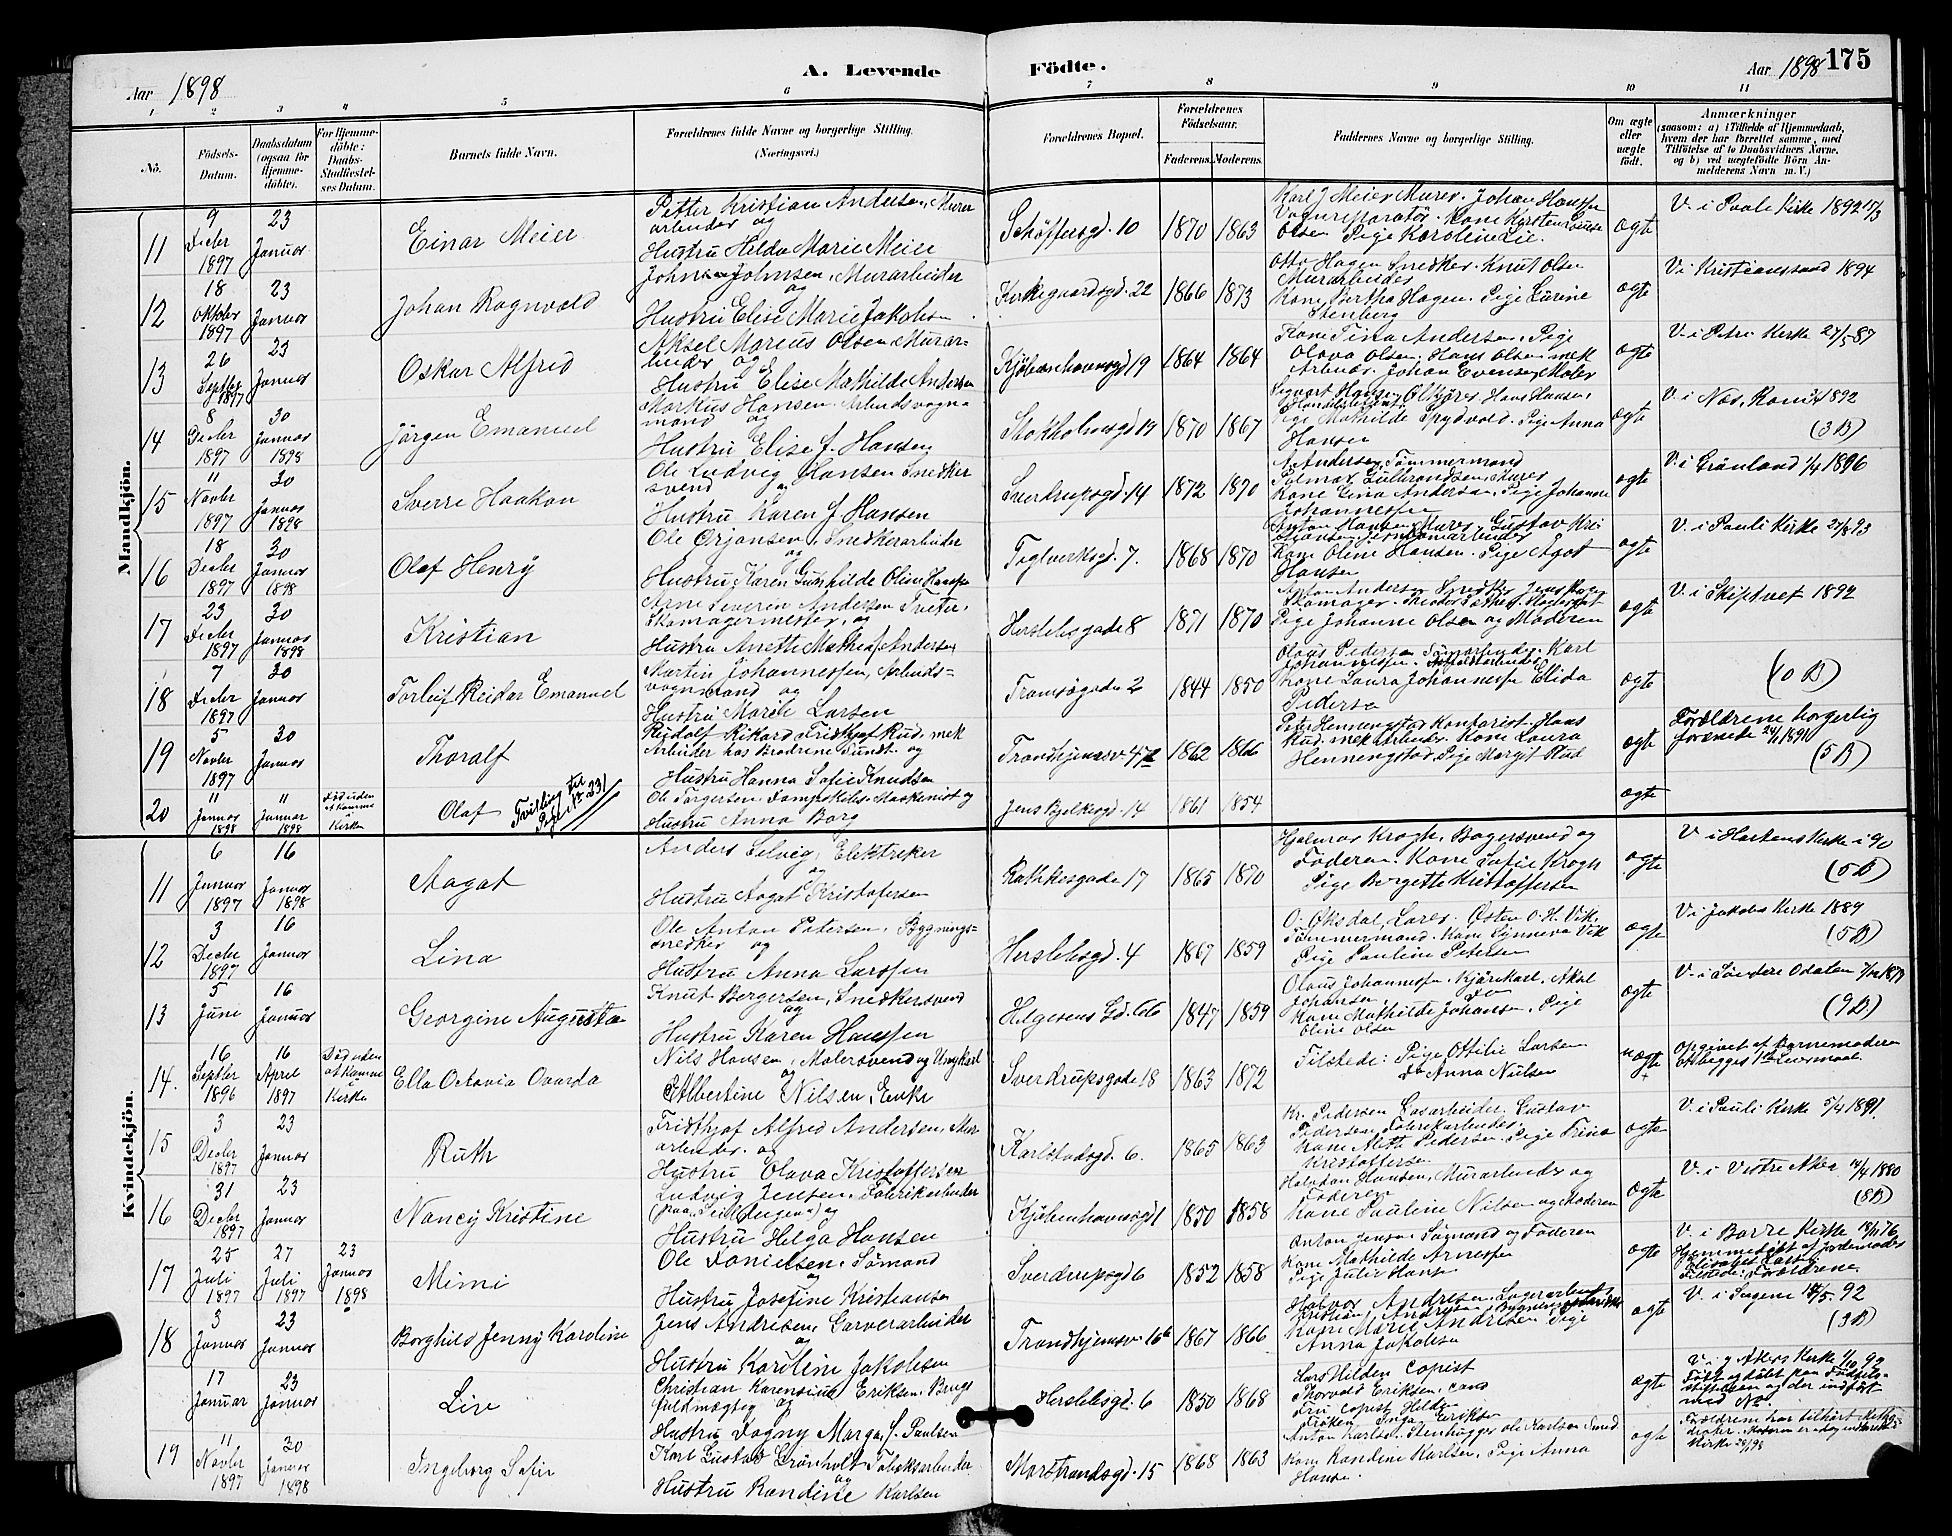 175
Aar 1898
A. Levende
Födte.
Aar 1898
1 2 3 4 5 6 7 8 9 10 11
No.
Födsels-
Datum.
Daabsdatum
(ogsaa for
Hjemme-
döbte).
For Hjemme-
döbte:
Daabs-
Stadfæstel-
ses Datum.
Barnets fulde Navn.
Forældrenes fulde Navne og borgerlige Stilling.
(Næringsvei.)
Forældrenes Bopæl.
Forældrenes
Födselsaar.
Faderens. Moderens.
Faddernes Navne og borgerlige Stilling.
Om ægte
eller
uægte
födt.
Anmærkninger
(saasom: a) i Tilfælde af Hjemmedaab,
hvem der har forrettet samme, med
Tilföielse af to Daabsvidners Navne.
og b) ved uægtefödte Börn An-
melderens Navn m. V.)
Mandkjön.
11
9
Decbr
1897
23
Januar
Einar Meier
Petter Kristian Andersen, Murer
arbeider og
Hustru Hilda Marie Meier
Schöffersgd. 10
1870 1863
Karl J Meier Murer. Johan Hansen
Olsen Pige Karoline Lie.
ægte
V. i Pauls Kirke 1892
12
18
Oktober
1897
23
Januar
Johan Ragnvald
Johnsen, Murarbeider
og
Hustru Elise Marie Jakobsen
Kirkegaardsgd. 22
1866 1873
Otto Hagen Snedker. Knut Olsen
Murarbeider
Kone Bertha Hagen. Pige Lurine
Stenberg
ægte
V. i Kristianssand 1894
13
26
Septbr
1897
23
Januar
Oskar Alfred
Aksel Marius Olsen Murar-
beider og
Hustru Elise Mathilde Andersen
Kjöbenhavnsgd 19
1864 1864
Kone Tina Andersen. Pige
Olava Olsen. Hans Olsen mek
Arbeider. Johan Evensen Maler
ægte
V. i Petri Kirke
14
8
Decbr
1897
30
Januar
1898
Jörgen Emanuel
Markus Hansen. Arbeidsvogn-
mand og
Hustru Elise f. Hansen
Stokholmsgd 19
1870 1867
Hansen
ægte
V. i Næs, Rom. 1892
(3 B)
15
11
Novbr
1897
30
Januar
1898
Sverre Haakon
Ole Ludvig Hansen Snedker
svend og
Hustru Karen f Hansen
Sverdrupsgd. 14
1872 1870
A. Andersen, Tömmermand
Kone Lina Andersen. Pige Johanne
Johannessen
ægte
V. i Grönland 1/4 1896
16
18
Decbr
1897
30
Januar
1898
Olaf Henry
Ole Örjansen. Snedkerarbeider
og
Hustru Karen Gunhilde Oline Hansen
Teglverksgd. 7.
1868 1870
Anton Hansen, Murer, Gustav Kri
Kone Oline Hansen. Pige Agot
Hansen
ægte
V. i Pauli Kirke
17
23
Decbr
1897
30
Januar
1898
Kristian
Arne Severin Andersen Træter,
Skomagermester, og
Hustru Anette Mathea f. Andersen
Herslebsgade 8
1871 1870
Pige Johanne Olsen og Moderen
ægte
V. i Skiptvet 1892
18
7
Decbr
1897
30
Januar
Torleif Reidar Emanuel
Martin Johannessen, Arbeids-
vognmand og
Hustru Marie Larsen
Tromsögade 2
1844 1850
Olaus Pedersen Karl
Johannessen.
Kone Laura Johannessen Elida
Pedersen
ægte
(10 B)
19
5
Novbr
1897
30
Januar
Thoralf
Rudolf Rikard Fridtjof Rud. mek
Arbeider hos Brödrene Sundt. og
Hustru Hanna Sofie Knudsen
Trondhjemsv. 47
1862 1866
Peter Henningstad Kontorist. Hans
Rud. mek Arbeider. Kone Laura
Henningstad. Pige Margit Rud
ægte
Forældrene borgerlig
forenede
(5 B)
20
11
Januar
1898
11
Januar
1898
Död uden
at komme
i
Kirken
Olaf
Tvilling til
Pige No. 231
Ole Torgersen. Dampskibs-Maskinist og
Hustru Anna Borg
Jens Bjelkesgd. 14
1861 1854
ægte
Kvindekjön.
11
6
Januar
1897
16
Januar
1898
Aagat
Anders Selvig, Elektriker
og
Hustru Aagat Kristofersen
Rathkesgade 17
1865 1870
Hjalmar Krogh. Bagersvend og
Faderen. Kone Sofie Krogh
Pige Borgette Kristoffersen
ægte
V. i Hortens Kirke i 90
(5 B)
12
3
Decbr
1897
16
Januar
Lina
Ole Anton Petersen, Bygnings-
snedker og
Hustru Anna Larssen
Herslebsgd. 4
1867 1859
O. Oksdal, Lærer. Östen O. H. Vik,
Tömmermand. Kone Synneva Vik
Pige Pauline Petersen
ægte
V. i Jakobs Kirke 1889
(5 B)
13
5
Juni
16
Januar
Georgine Augusta
Knut Bergersen, Snedkersvend
og
Hustru Karen Hanssen
Helgesens Gd. 66
1847 1859
Olaus Johannessen, Kjörekarl, Aksel
Johansen Do
Kone Mathilde Johansen. Pige
Oline Olsen
ægte
V. i Söndre Odalen
(9 B)
14.
16
Septbr
1896
16
April
1897
Död uden
at komme
i
Kirke
Ella Octavia Ovarda
Nils Hansen, Malersvend og Ungkarl
og
Albertine Nilsen, Enke
Sverdrupsgade 18
1863 1872
Tilstede: Pige Ottilie Larsen
Do Anna Nielsen
uægte
Opgivet af Barnemoderen
at begges 1ste Leiermaal.
15
3
Decbr
1897
23
Januar
Ruth
Fridthjof Alfred Andersen, Mur-
arbeider. og
Hustru Olava Kristoffersen
Karlstadsgd. 6.
1865 1863
Kr. Pedersen Gasarbeider. Gustav
Pedersen, Fabrikarbeider.
Kone Alette Pedersen. Pige Trina
Kristoffersen
ægte
V. i Pauli Kirke 5/4 1891.
16
31
Decbr
1897
23
Januar
Nancy Kristine
Ludvig Jensen. Fabrikarbeider
og
Hustru Helga Hansen
Kjöbenhavnsgd 1
1850 1858
Halvdan Hansen, Murarbeider og
Faderen
Kone Pauline Nilsen og Moderen
ægte
V. i Vestre Aker 1880
(8 B)
17
25
Juli
1897
27
Juli
1897
23
Januar
1898
Mimi
Ole Danielsen, Sömand
og
Hustru Josefine Kristiansen
Sverdrupsgd 6
1852 1858
Anton Jensen Sömand og Faderen
Kone Mathilde Arnesen
Pige Julie Hansen
ægte
V. i Borre Kirke
Hjemmedöbt af Jordemoder
Tilstede: Forældrene
18
3
Januar
23
Januar
Borghild Jenny Karoline
Jens Andresen, Garverarbeider
og
Hustru Karoline Jakobsen
Trondhjemsv. 16b
1867 1866
Halvor Andresen, Lagerarbeider
Kone Maren Andresen Pige
Anna Jakobsen
ægte
V. i Sagene 92
(3 B)
17
Januar
23
Januar
Live
Christian Karensius Eriksen, Brugs
fuldmægtig og
Hustru Dagny Marga, f. Paulsen
Herslebsgd. 6
1850 1868
Lars Hilden Copist
Thorvald Eriksen, cand
Fru Copist Hilden
Fröken Inga Eriksen
ægte
V. i g. Akers Kirke 92
Födt og döbt paa Födsels-
stiftelsen og der indfört
med No.
19
11
Novbr
1897
30
Januar
1898
Ingeborg Sofie
Karl Gustav Grönholt Tobaksarbeider
og
Hustru Randine Karlsen
Marstrandsgd. 15
1868 1863
Anton Karlsen, Stenhugger
Kone Randine Karlsen, Pige Anna
Hansen.
ægte
Forældrene har tilhört